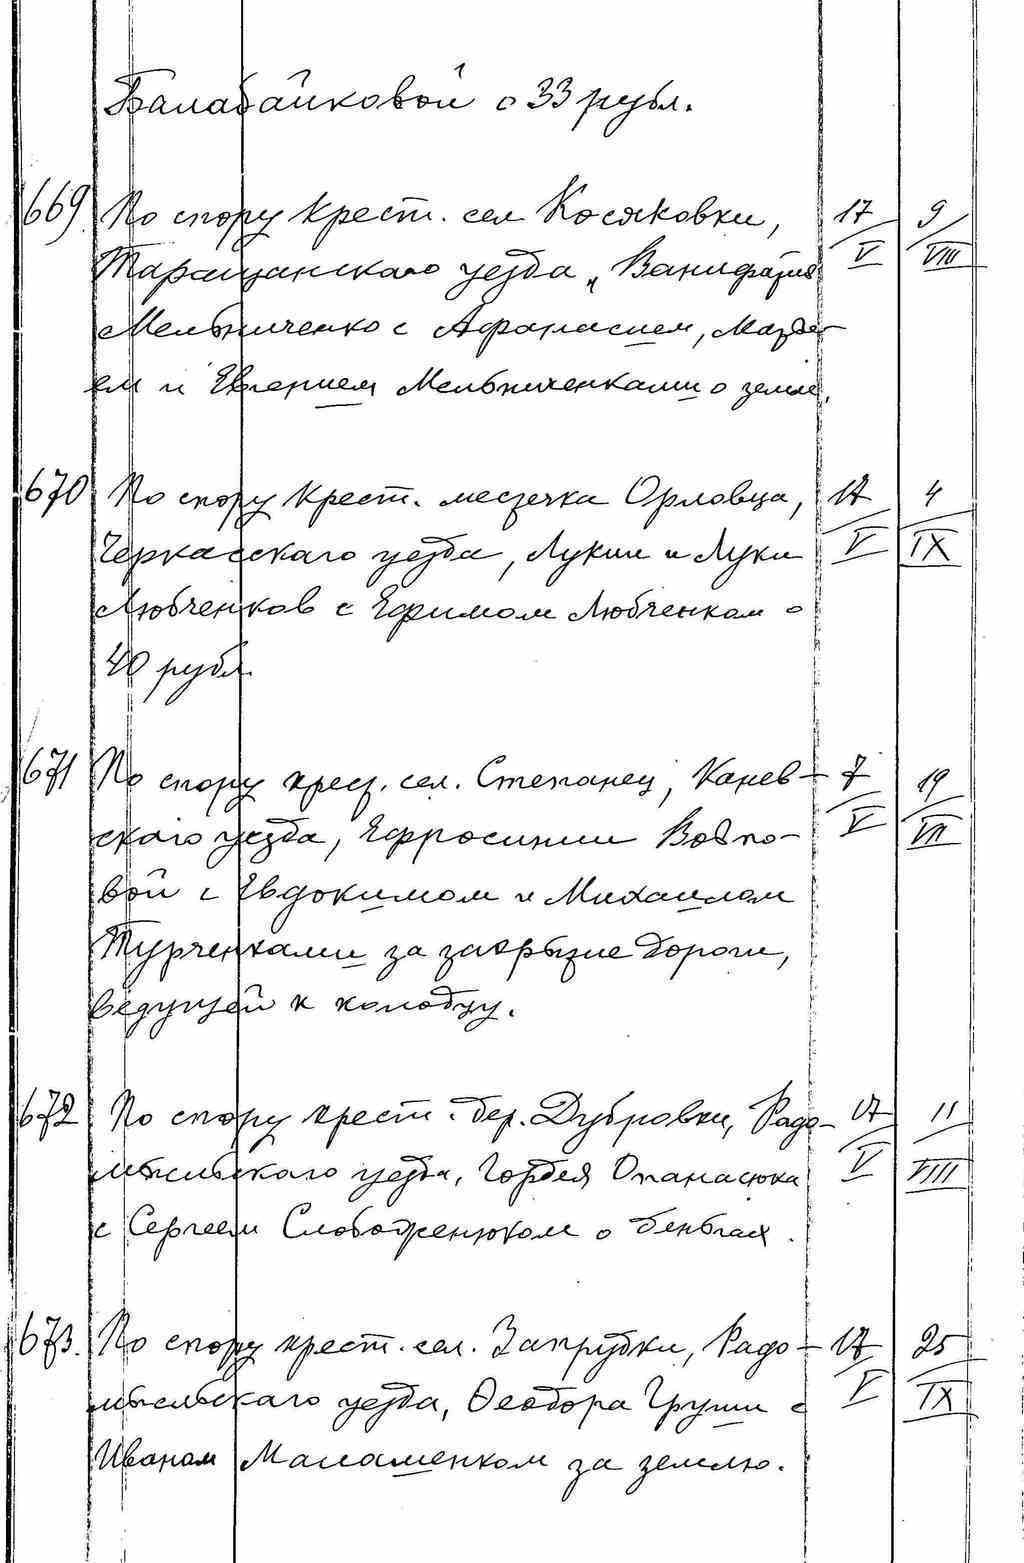 Балабайковой о 33 рубл.
669. По спору крест. сел Косяковки, 17 9
Таращанскаго уезда, Ванифатия V VIII
Мельниченко с Афанасием,
ем и Евгением Мельниченками о земле.
670 По спору крест. местечка Орловца, 17 4
Черкасскаго уезда, Лукии и Луки V IX
Любченков с Ефимом Любченком о
40 рубл.
671 По спору крест. сел. Степанец, Канев- 7 19
скаго уезда, Ефросинии Вовко- V VII
вой с Евдокимом и Михаилом
Турченками за закрытие дороги,
ведущей к колодцу.
672 По спору крест. дер. Дубровки, Радо- 17 11
мысльскаго уезда, Гордея Опанасюка V VIII
с Сергеем Слободенюком о деньгах.
673. По спору крест. сел. Запрудки, Радо- 17 25
мысльскаго уезда, Феодора Груши с V IX
Иваном Маламенком за землю.